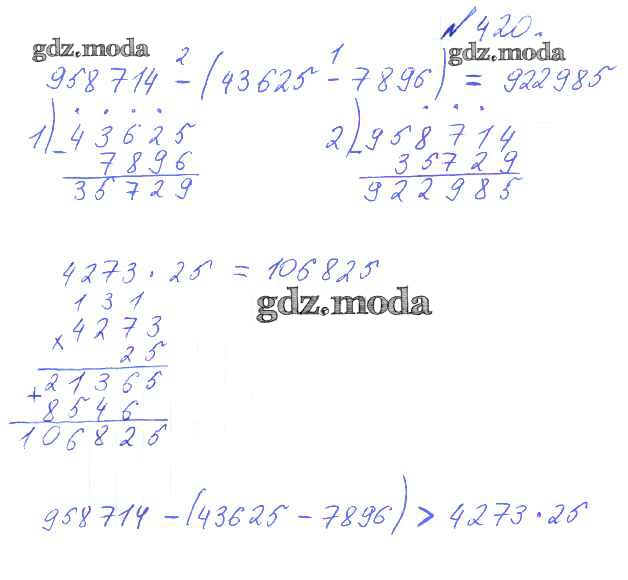 № 420.
gdz.moda
gdz.moda
2 1
958714 - (43625 - 7896) = 922985
1) 43625
- 7896
35729
2) 958714
- 35729
922985
4273 · 25 = 106825
gdz.moda
1 3 1
× 4273
25
21365
+ 8546
106825
958714 - (43625 - 7896) > 4273 · 25